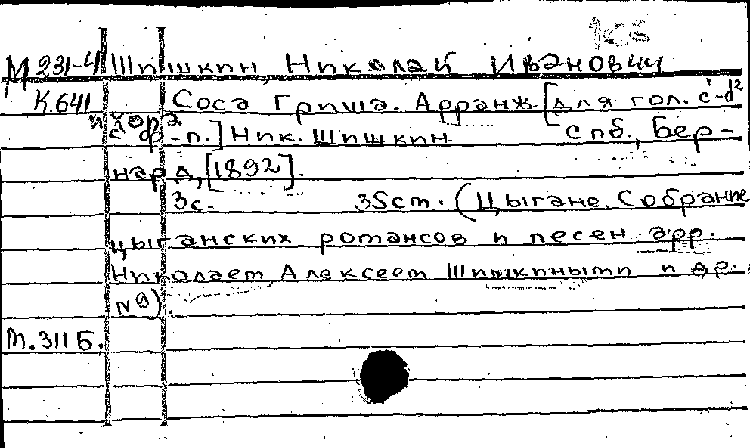 М 231-4 Шишкин, Николай Иванович
К.641 Соса Гриша. Арранж. [для гол. c'-d²
и ф.-п.] Ник. Шишкин спб., Бер-
нард, [1892].
3с. 35cm. (Цыгане. Собрание
цыганских романсов и песен арр.
Николаем, Алексеем Шишкиными и др.
N9).
М.311Б.